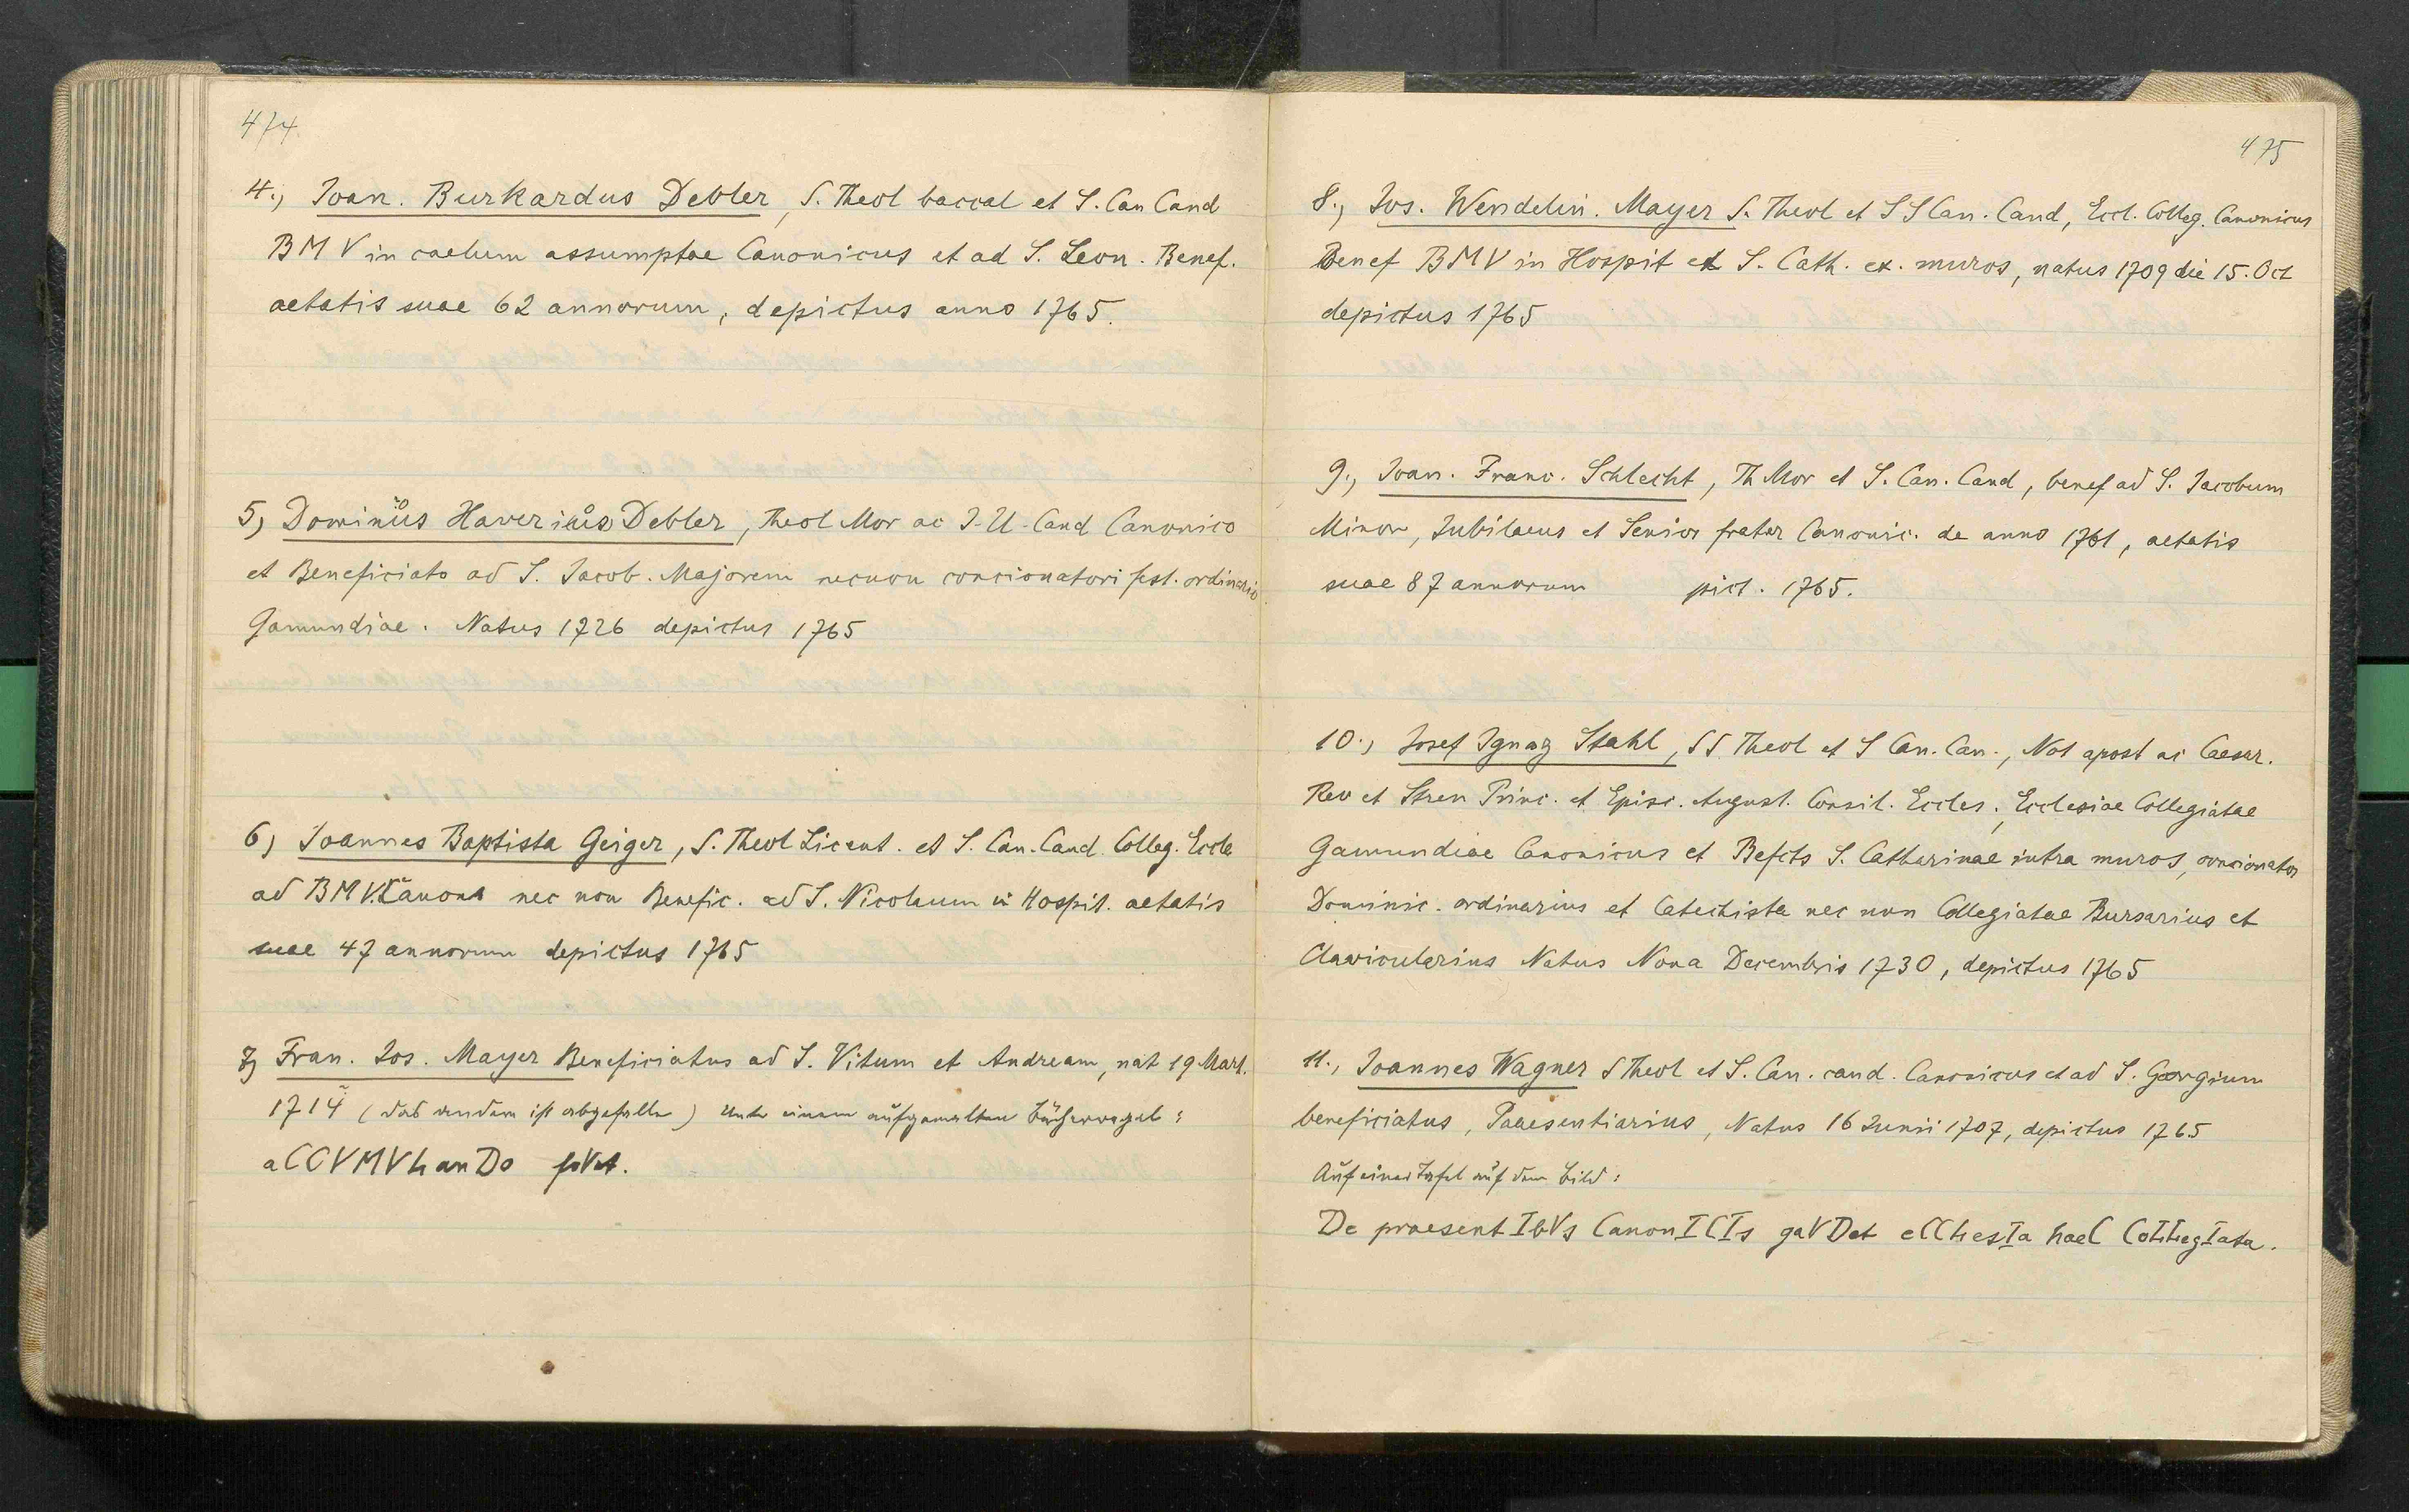 474.
4., Joan. Burkardus Debler, S. Theol baccal et S. Can Cand
BMV in caelum assumptae Canonicus et ad S. Leon. Benef.
aetatis suae 62 annorum, depictus anno 1765.
5, Dominus Haverius Debler, Theol Mor ac J. U. Cand Canonico
et Beneficiato ad S. Jacob. Majorem necnon concionatori fest. ordinario
Gamundiae. Natus 1726 depictus 1765
6, Joannes Baptista Geiger, S. Theol Licent. et S. Can. Cand. Colleg. Eccle
ad BMV. nec non Benefic. ad S. Nicolaum in Hospit. aetatis
suae 47 annorum depictus 1765
7, Fran. Jos. Mayer Beneficiatus ad S. Vitum et Andream, nat 19 Mart.
1714 (das andere ist abgefallen) Unter einem aufgemalten Bücherregal:
aCCVMVLanDo
475
8., Jos. Wendelin. Mayer S. Theol et SS Can. Cand, Eccl. Colleg. Canonicus
Benef BMV in Hospit et S. Cath. ex. muros, natus 1709 die 15. Oct
depictus 1765
9., Joan. Franc. Schlecht, Th Mor et S. Can. Cand, benef ad S. Jacobum
Minor, Jubilaeus et Senior frater Canonic. de anno 1761, aetatis
suae 87 annorum pict. 1765.
10., Josef Ignaz Stahl, SS Theol et S Can. Can., Not apost ac Caesar.
Rev et Seren Princ. et Episc. August. Consil. Eccles., Ecclesiae Collegiatae
Gamundiae Canonicus et Befcts S. Catharinae intra muros, concionator
Dominic. ordinarius et Catechista nec non Collegiatae Bursarius et
Clavicularius Natus Nona Decembris 1730, depictus 1765
11., Joannes Wagner S Theol et S. Can. cand. Canonicus et ad S. Georgium
beneficiatus, Praesentiarius, Natus 16 Junii 1707, depictus 1765
Auf einer Tafel auf dem Bild:
De praesentIbVs CanonICIs gaVDet eCCLesIa haeC CoLLegIata.